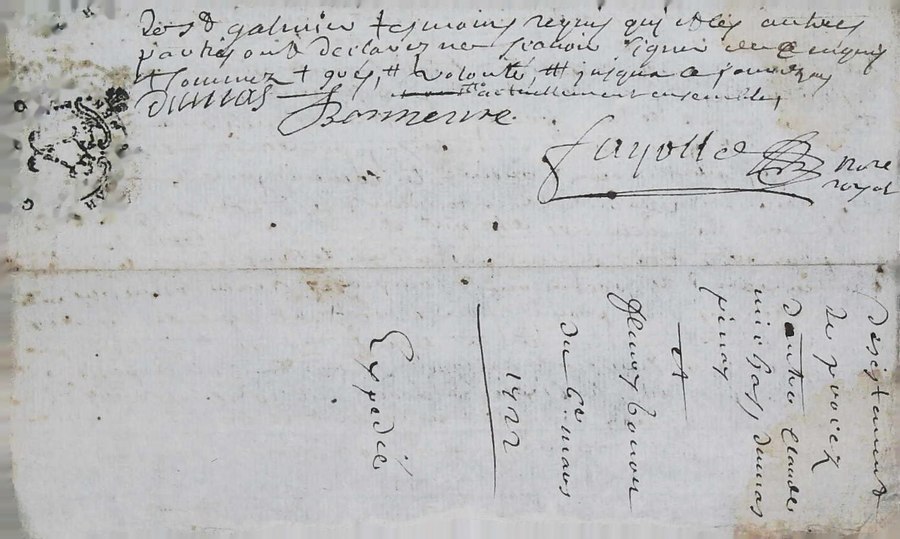 de Sr galmier + tesmoins requis qui et les autres
parties ont declarez ne scavoir signer de ce enquis
+ sommez + qués # volonté ## jusque a ce jourdhuy
actuellement ensembles
dumas
Bonnerve
fayolle
nore
royal
desistement
de procez
dentre Claude
dumas
pinay
et
fleury bonon
du 6e mars
1722
Expedié